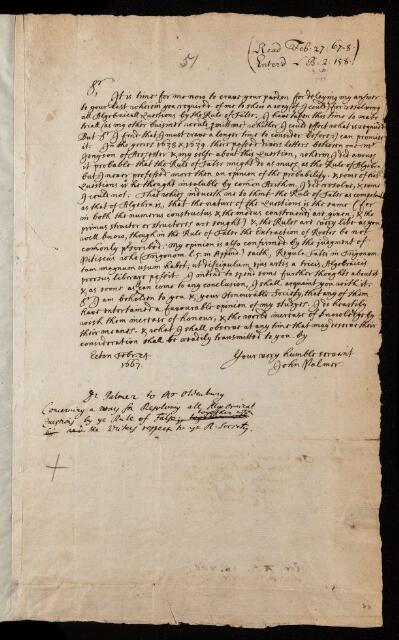 51
(Read Feb: 27: 67-8.)
Enterd L B. 2. 158.
Sr
It is time for me now to crave your pardon for delaying my answer
to your last wherein you required of me to shew a way (if I could) for resolving
all Algebraicall Questions by the Rule of False. I have taken this time to make
triall, (as my other business would permitt me) whether I could effect what is required
But Sr I find that I must crave a longer time to consider before I can promise
it. In the yeares 1638 & 1639 there passed divers letters between one Mr
of & my selfe about this Question, wherein I did averre
it probable that the Rule of False might do as much as the Rule of Algebra
but I never professed more then an opinion of the probability. & some of his
Questions wch he thought insoluble by comon Arithm. I did resolve, & some
I could not. That wch induceth me to think the Rule of False as competent
as that of Algebra is, that the nature of the Questions is the same (for
in both the numerus constructus & the modus constructionis are given, & the
primus structor or structores are sought) & the Rules are very like as you
well know, though in the Rule of False the Extraction of Rootes be not
comonly prscribed. My opinion is also confirmed by the judgment of
Pitiscus who (Trigonom. l. 5. in ) saith, Regula Falsi in Trigonom.
tam magnum usum habet, ut
prorsus liberare possit. I intend to spend some further thoughts about it
& as soone as I can come to any conclusion, I shall acquaint you with it.
Sr I am beholden to you & your Honourable Society, that any of them
have entertained a favourable opinion of my studyes. I do heartily
wish them increase of honour, & the world increase of knowledge by
their meanes. & what I shall observe at any time that may deserve their
consideration shall be readily transmitted to you by
Ecton Febr. 24.
1667.
Your very humble servant
John Palmer.
Mr Palmer to Mr Oldenburg
Concerning a way for Resolving all Algebraical
Questions by ye Rule of False; together with
the Writers respect to ye R. Society.